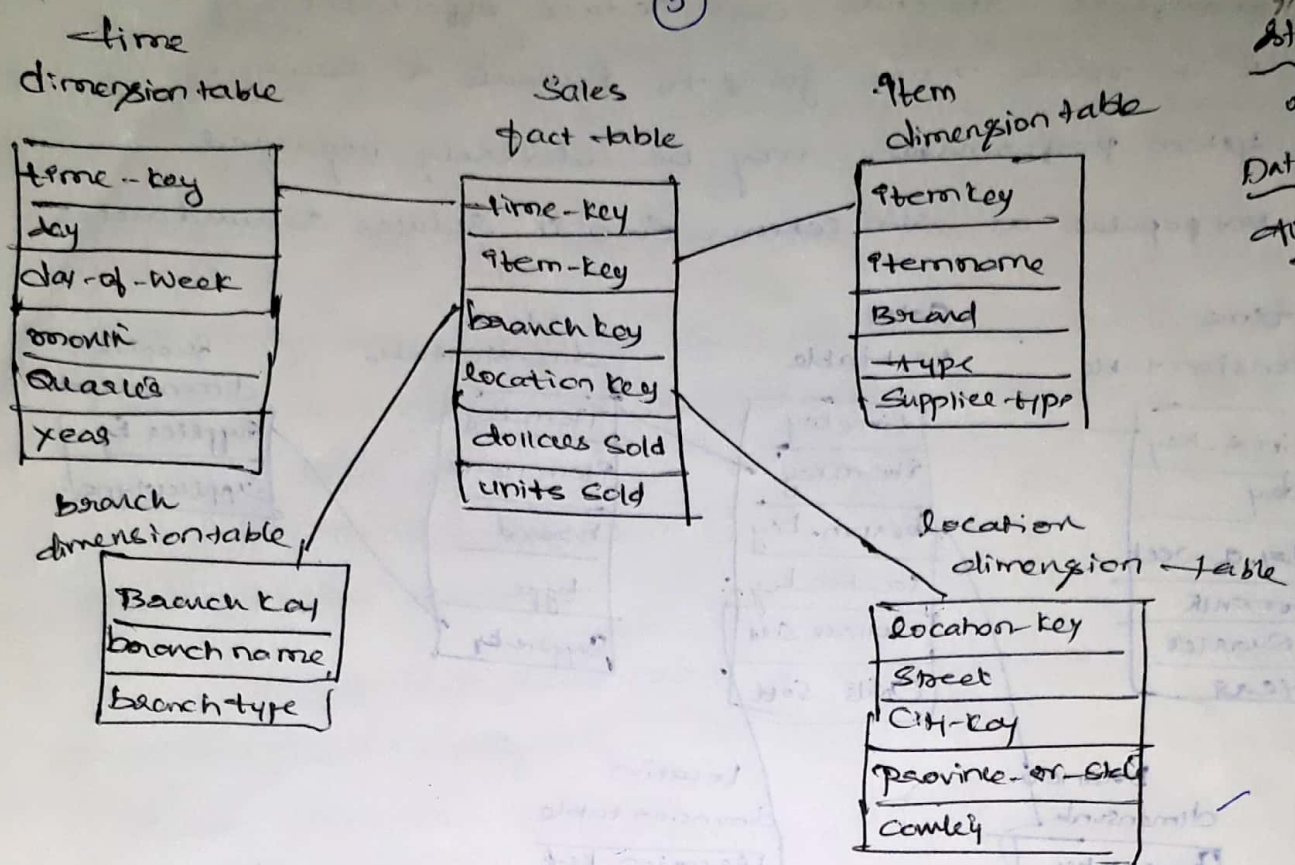 3
time
dimension table
time-key
day
day-of-week
month
Quarter
year
Sales
fact table
time-key
item-key
branch key
location key
dollars sold
units sold
Item
dimension table
item key
itemname
Brand
type
Supplier type
branch
dimension table
Branch key
branch name
branch type
location
dimension table
location-key
Street
City-key
province-or-state
country
St
Dat